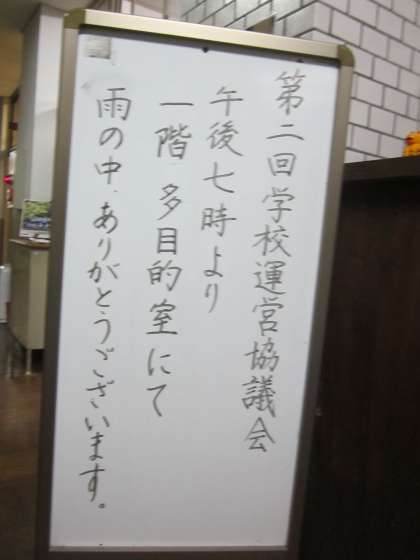 第二回学校運営協議会
午後七時より
一階 多目的室にて
雨の中、ありがとうございます。